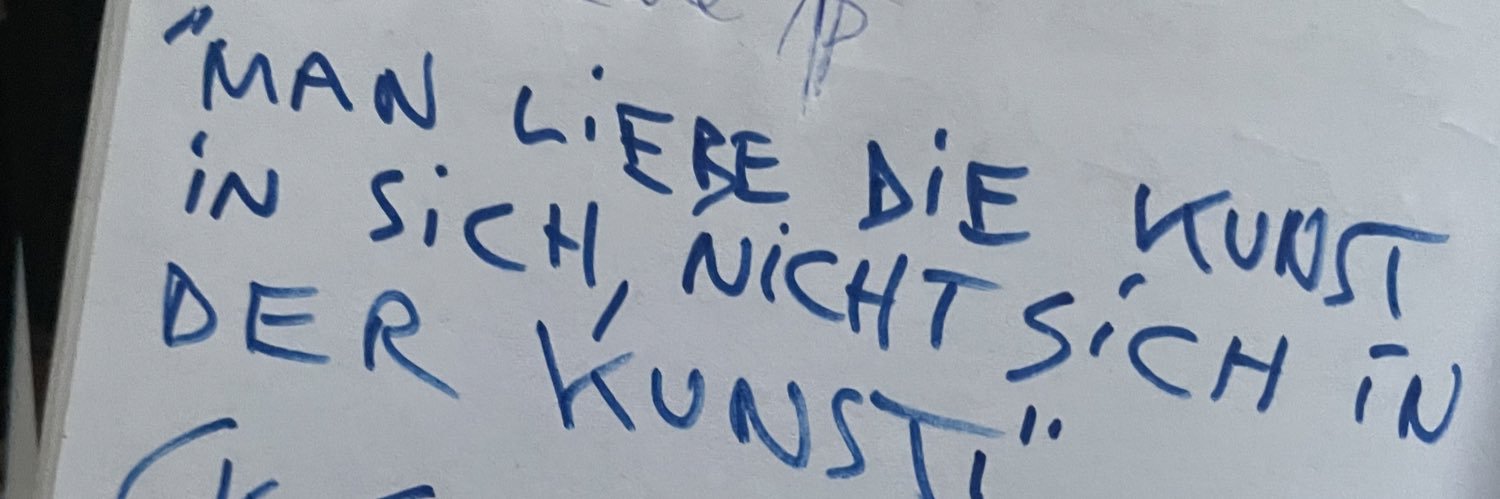 "MAN LiEBE DiE KUNST
iN SiCH, NiCHT SiCH iN
DER KUNST!"